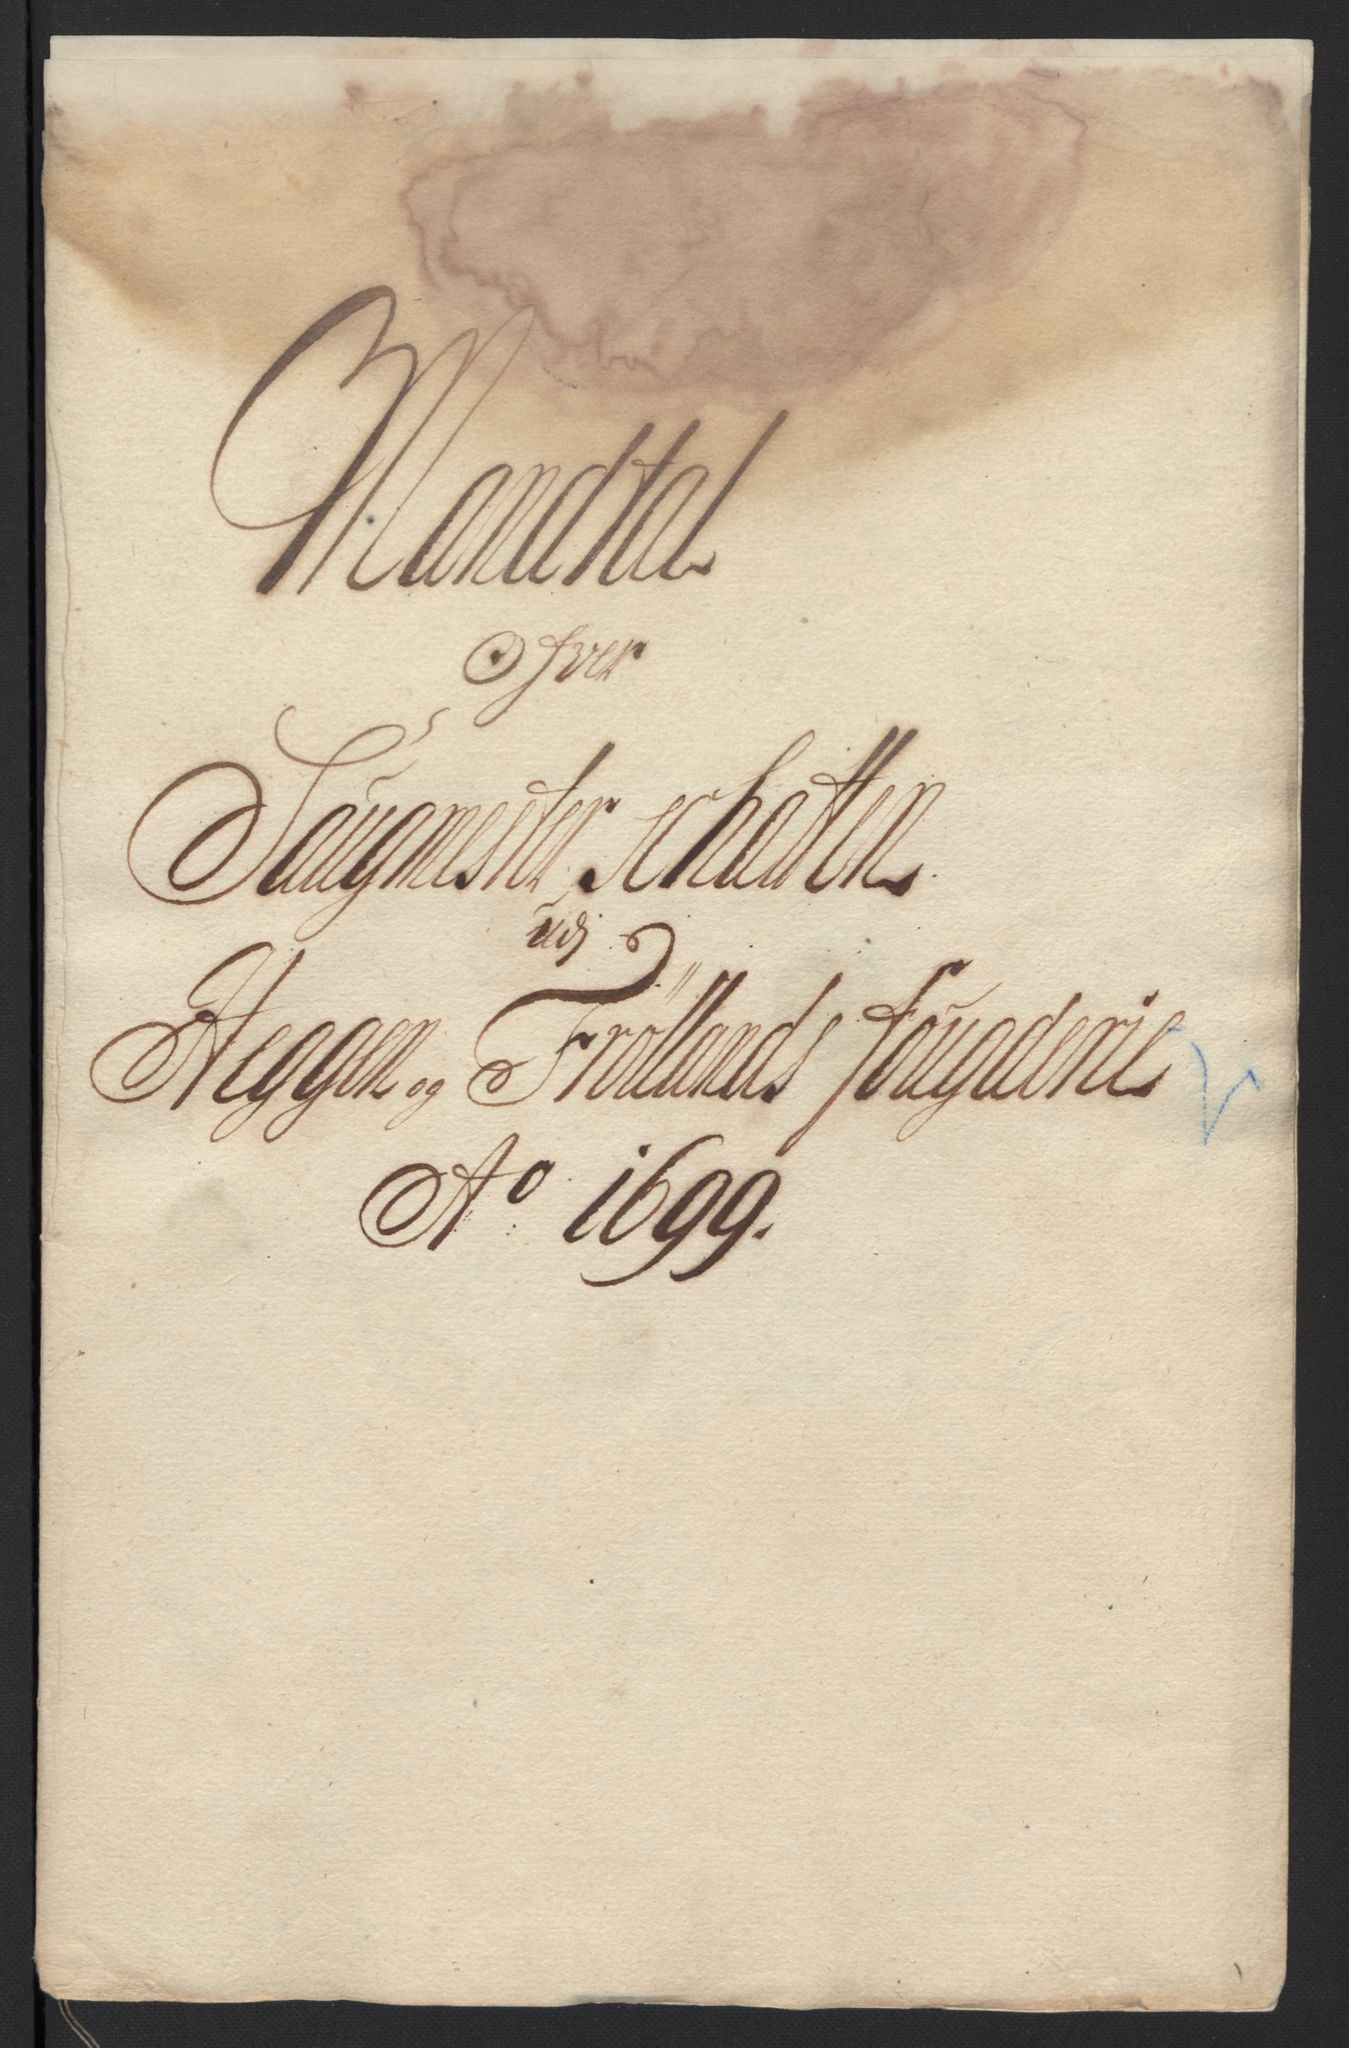 Mandtal
Ofver
Saugmester schatten
udj
Heggen og Fröllands fougderie
Ao 1699.